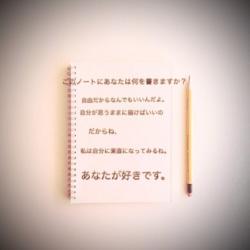 ノートにあなたは何を書きますか?
自由だからなんでもいいんだよ。
自分が思うままに描けばいいの
だからね、
私は自分に素直になってみるね。
あなたが好きです。